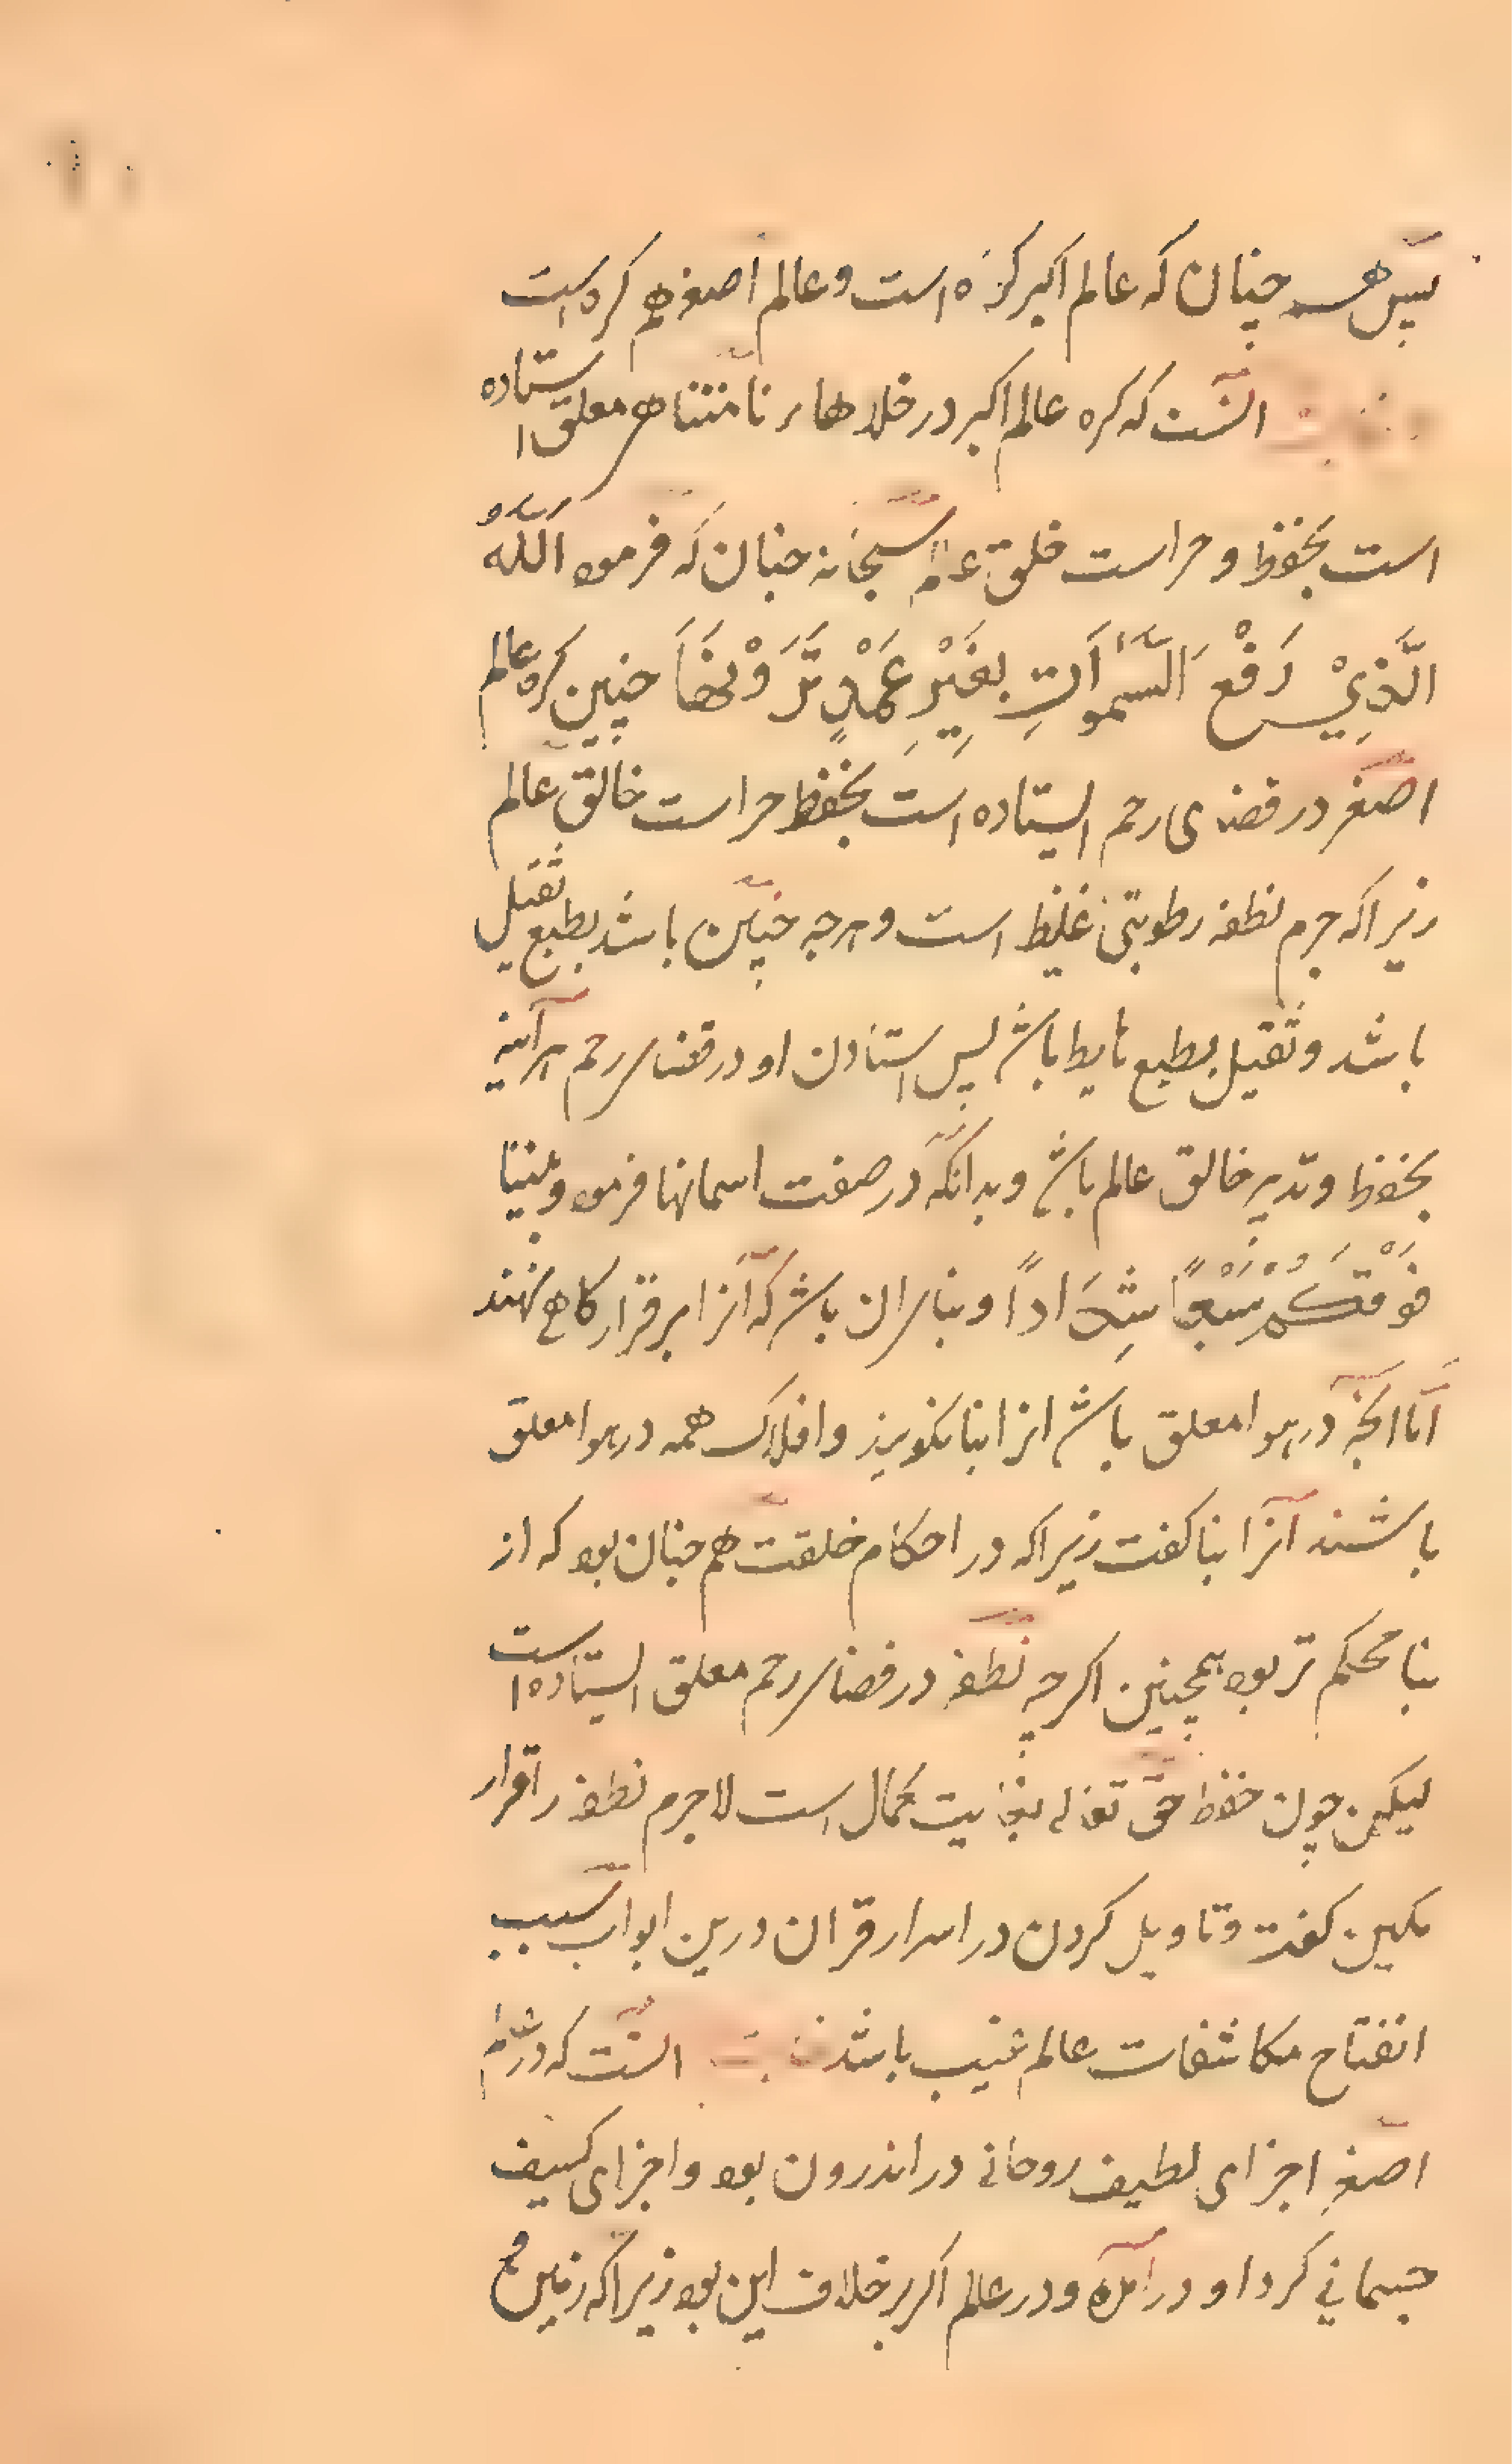 پس همچنان که عالم اکبر کره است و عالم اصغر هم کره است
آنست که کره عالم اکبر در خلاهاء نامتناهی معلق ایستاده
است بحفظ و حراست خلق عالم سبحانه چنان که فرموده اَللّٰهُ
الَّذِيْ رَفْعَ السَّمٰوَاتِ بِغَيْرِ عَمْدٍ تَرَوْنَهَا چنین کره عالم
اصغر در فضای رحم ایستاده است بحفظ حراست خالق عالم
زیراکه جرم نطفه رطوبتی غلیظ است و هرچه چنین باشد بطبع ثقیل
باشد و ثقیل بطبع هابط باشد پس استادن او در فضاء رحم هرآینه
بحفظ و تدبیر خالق عالم باشد و بدانکه در صفت اسمانها فرموده و بنینا
فَوْقَكُمْ سَبْعًا شِدَادًا و بنابران باشد که آنرا بر قرارکاهی نهند
اما انچه در هوا معلق باشد انرا بنا نکویند و افلاک همه در هوا معلق
باشند آنرا بنا کفت زیراکه در احکام خلقت هم چنان بود که از
بنا محکم تر بود همچنین اکرچه نطفه در فضاء رحم معلق ایستاده است
لیکن چون حفظ حق تعالی بغایت کمال است لاجرم نطفه را قرار
مکین کفت و تاویل کردن در اسرار قران درین ابواب سبب
انفتاح مکاشفات عالم غیب باشد آنست که در عالم
اصغر اجزای لطیف روحانی در اندرون بود و اجزای کسیف
جسمانی کرد او درآمده و در عالم اکبر بر خلاف این بود زیراکه زمین